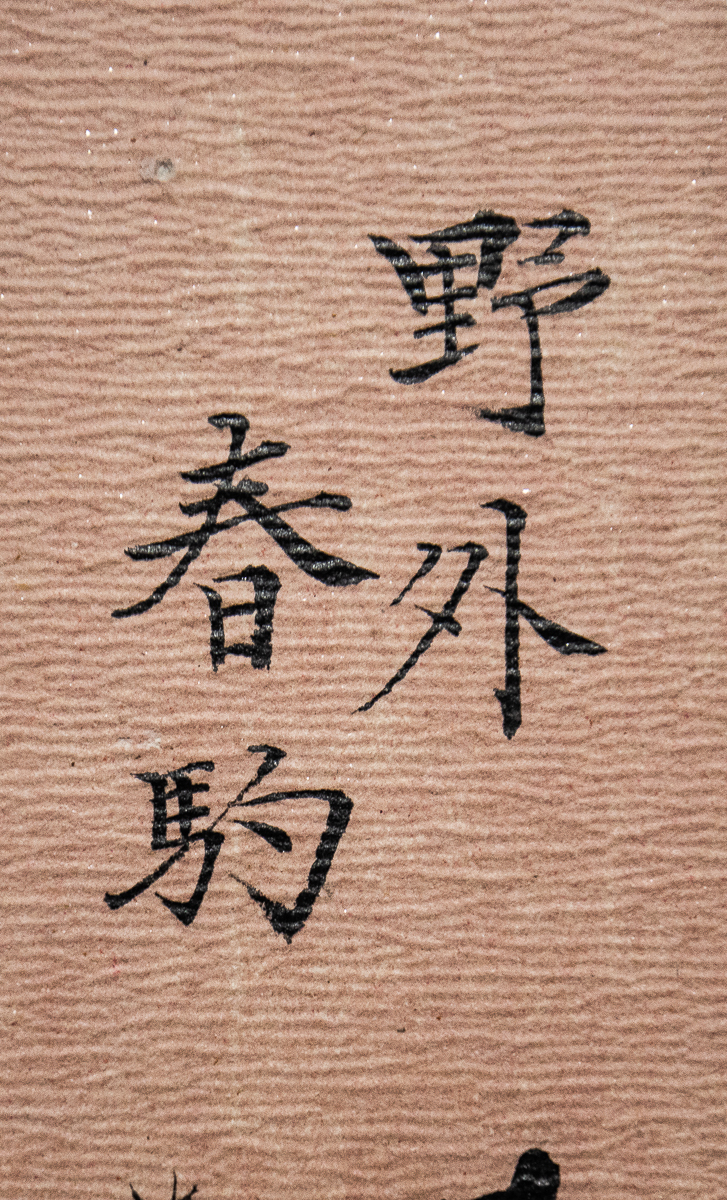 野外
春駒